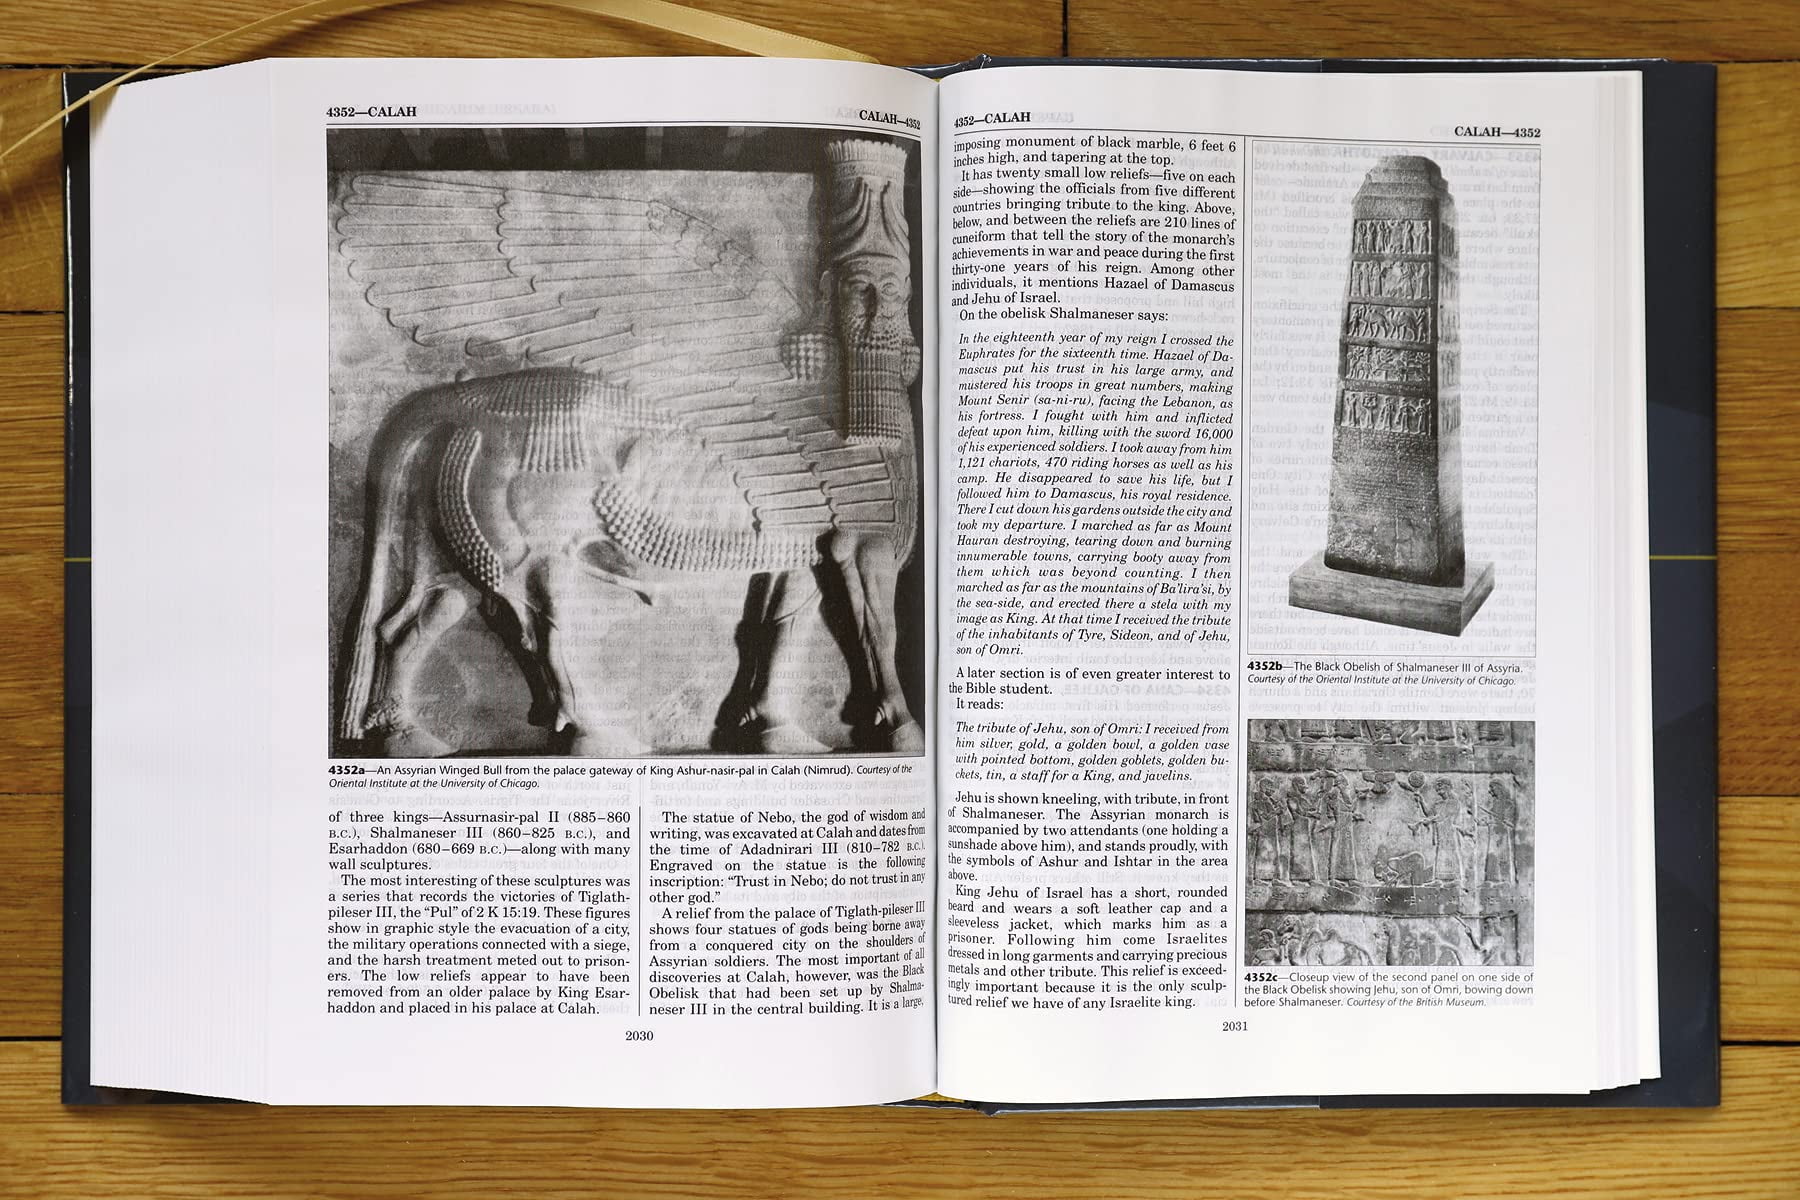 4352—CALAH
CALAH—4352
4352a—An Assyrian Winged Bull from the palace gateway of King Ashur-nasir-pal in Calah (Nimrud). Courtesy of the
Oriental Institute at the University of Chicago.
of three kings—Assurnasir-pal II (885–860
B.C.), Shalmaneser III (860–825 B.C.), and
Esarhaddon (680–669 B.C.)—along with many
wall sculptures.
The most interesting of these sculptures was
a series that records the victories of Tiglath-
pileser III, the “Pul” of 2 K 15:19. These figures
show in graphic style the evacuation of a city,
the military operations connected with a siege,
and the harsh treatment meted out to prison-
ers. The low reliefs appear to have been
removed from an older palace by King Esar-
haddon and placed in his palace at Calah.
The statue of Nebo, the god of wisdom and
writing, was excavated at Calah and dates from
the time of Adadnirari III (810–782 B.C.).
Engraved on the statue is the following
inscription: “Trust in Nebo; do not trust in any
other god.”
A relief from the palace of Tiglath-pileser III
shows four statues of gods being borne away
from a conquered city on the shoulders of
Assyrian soldiers. The most important of all
discoveries at Calah, however, was the Black
Obelisk that had been set up by Shalma-
neser III in the central building. It is a large,
2030
4352—CALAH
CALAH—4352
imposing monument of black marble, 6 feet 6
inches high, and tapering at the top.
It has twenty small low reliefs—five on each
side—showing the officials from five different
countries bringing tribute to the king. Above,
below, and between the reliefs are 210 lines of
cuneiform that tell the story of the monarch’s
achievements in war and peace during the first
thirty-one years of his reign. Among other
individuals, it mentions Hazael of Damascus
and Jehu of Israel.
On the obelisk Shalmaneser says:
In the eighteenth year of my reign I crossed the
Euphrates for the sixteenth time. Hazael of Da-
mascus put his trust in his large army, and
mustered his troops in great numbers, making
Mount Senir (sa-ni-ru), facing the Lebanon, as
his fortress. I fought with him and inflicted
defeat upon him, killing with the sword 16,000
of his experienced soldiers. I took away from him
1,121 chariots, 470 riding horses as well as his
camp. He disappeared to save his life, but I
followed him to Damascus, his royal residence.
There I cut down his gardens outside the city and
took my departure. I marched as far as Mount
Hauran destroying, tearing down and burning
innumerable towns, carrying booty away from
them which was beyond counting. I then
marched as far as the mountains of Ba’lira’si, by
the sea-side, and erected there a stela with my
image as King. At that time I received the tribute
of the inhabitants of Tyre, Sideon, and of Jehu,
son of Omri.
A later section is of even greater interest to
the Bible student.
It reads:
The tribute of Jehu, son of Omri: I received from
him silver, gold, a golden bowl, a golden vase
with pointed bottom, golden goblets, golden bu-
ckets, tin, a staff for a King, and javelins.
Jehu is shown kneeling, with tribute, in front
of Shalmaneser. The Assyrian monarch is
accompanied by two attendants (one holding a
sunshade above him), and stands proudly, with
the symbols of Ashur and Ishtar in the area
above.
King Jehu of Israel has a short, rounded
beard and wears a soft leather cap and a
sleeveless jacket, which marks him as a
prisoner. Following him come Israelites
dressed in long garments and carrying precious
metals and other tribute. This relief is exceed-
ingly important because it is the only sculp-
tured relief we have of any Israelite king.
4352b—The Black Obelish of Shalmaneser III of Assyria.
Courtesy of the Oriental Institute at the University of Chicago.
4352c—Closeup view of the second panel on one side of
the Black Obelisk showing Jehu, son of Omri, bowing down
before Shalmaneser. Courtesy of the British Museum.
2031